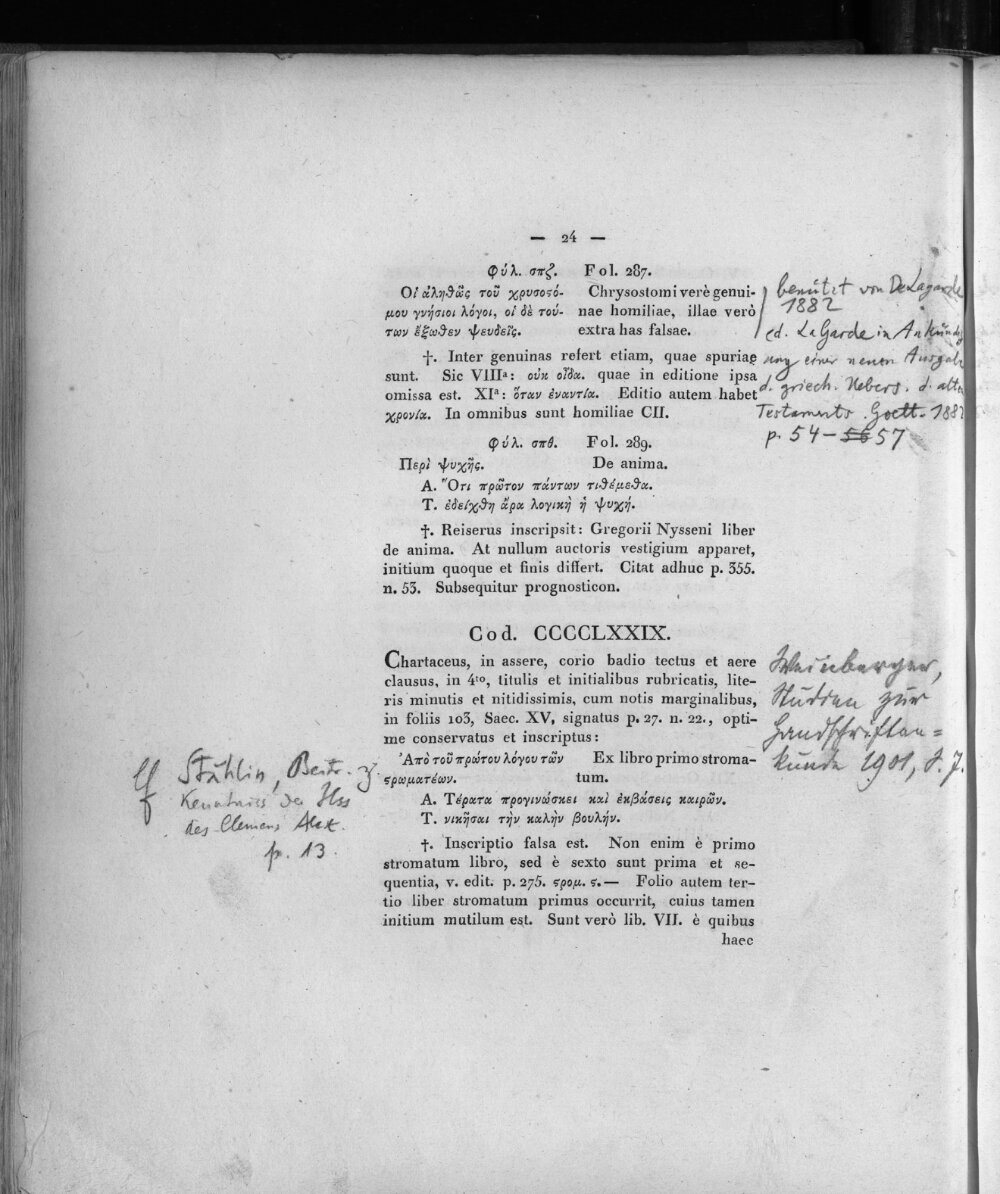 — 24 —
Φύλ. σπζ. Fol. 287.
Οἱ ἀληθῶς τοῦ χρυσοϛό- Chrysostomi verè genui-
μου γνήσιοι λόγοι, οἱ δὲ τού- nae homiliae, illae verò
των ἔξωθεν ψευδεῖς. extra has falsae.
†. Inter genuinas refert etiam, quae spuriae
sunt. Sic VIIIª: οὐκ οἶδα. quae in editione ipsa
omissa est. XIª: ὅταν ἐναντία. Editio autem habet
χρονία. In omnibus sunt homiliae CII.
Φύλ. σπθ. Fol. 289.
Περὶ ψυχῆς. De anima.
Α. Ὅτι πρῶτον πάντων τιθέμεθα.
Τ. ἐδείχθη ἄρα λογικὴ ἡ ψυχή.
†. Reiserus inscripsit: Gregorii Nysseni liber
de anima. At nullum auctoris vestigium apparet,
initium quoque et finis differt. Citat adhuc p. 355.
n. 53. Subsequitur prognosticon.
Cod. CCCCLXXIX.
Chartaceus, in assere, corio badio tectus et aere
clausus, in 4to, titulis et initialibus rubricatis, lite-
ris minutis et nitidissimis, cum notis marginalibus,
in foliis 103, Saec. XV, signatus p. 27. n. 22., opti-
me conservatus et inscriptus:
Ἀπὸ τοῦ πρώτου λόγου τῶν Ex libro primo stroma-
ϛρωματέων. tum.
Α. Τέρατα προγινώσκει καὶ ἐκβάσεις καιρῶν.
Τ. νικῆσαι τὴν καλὴν βουλήν.
†. Inscriptio falsa est. Non enim è primo
stromatum libro, sed è sexto sunt prima et se-
quentia, v. edit. p. 275. ϛρομ. ϛ.— Folio autem ter-
tio liber stromatum primus occurrit, cuius tamen
initium mutilum est. Sunt verò lib. VII. è quibus
haec
benützt von De Lagarde
1882
ed. LaGarde in Ankündig
ung einer neuen Ausgabe
d. griech. Uebers. d. alten
Testaments. Goett. 1882
p. 54–56 57
Weinberger,
Studien zur
Handschriften=
kunde 1901, S. 7.
cf Stählin, Beitr. z.
Kenntniss der Hss
des Clemens Alex.
p. 13.